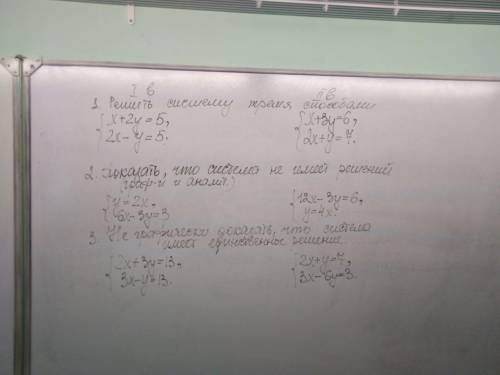 I в II в
1. Решить систему тремя способами
{x+2y=5, {x+3y=6,
2x-y=5. 2x+y=7.
2. Доказать, что система не имеет решений
(граф-и и аналит.)
{y=2x, {12x-3y=6,
6x-3y=3 y=4x.
3. Не графически доказать, что система
имеет единственное решение.
{2x+3y=13, {2x+y=7,
3x-y=13. 3x-6y=3.